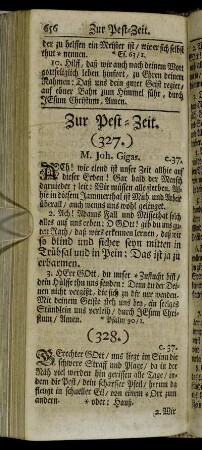 656 Zur Pest-Zeit.
der zu helffen ein Meister ist / wider sich selbst
thut * nennen. * Es. 63/1.
10. Hilff, daß wir auch nach deinem Wort
gottseliglich leben hinfort, zu Ehren deinem
Nahmen: Daß uns dein guter Geist regier,
auf ebner Bahn zum Himmel führ, durch
JEsum Christum, Amen.
Zur Pest-Zeit.
(327.)
M. Joh. Gigas. c. 37.
ACh! wie elend ist unser Zeit allhie auf
dieser Erden! Gar bald der Mensch
darnieder leit: Wir müssen alle sterben. All-
hie in diesem Jammerthal ist Müh und Arbeit
überall / auch wenns uns wohl gelinget.
2. Ach! Adams Fall und Missethat solch
alles auf uns erben: O GOtt! gib du uns gu-
ten Rath / daß wir's erkennen lernen / daß wir
so blind und sicher seyn mitten in
Trübsal und in Pein: Das ist ja zu
erbarmen.
3. HErr GOtt, du unser * Zuflucht bist /
dein Hülffe thu uns senden: Denn du der Dei-
nen nicht vergißt, die sich zu dir nur wenden.
Mit deinem Geiste steh uns bey, ein seeligs
Stündlein uns verleih / durch JEsum Chri-
stum / Amen. * Psalm 90/1.
(328.)
c. 37.
GErechter GOtt / uns liegt im Sinn die
schwere Straff und Plage / da in der
Näh viel werden hin gerissen alle Tage / in-
dem die Pest / dein scharffer Pfeil / herum da
fleugt in schneller Eil / von einem * Ort zum
andern. * oder: Hauß.
2. Wir